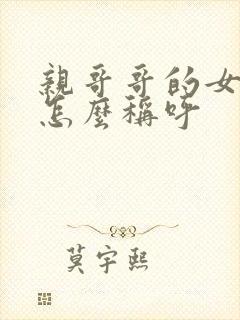 親哥哥的女
怎麼稱呼
莫宇熙